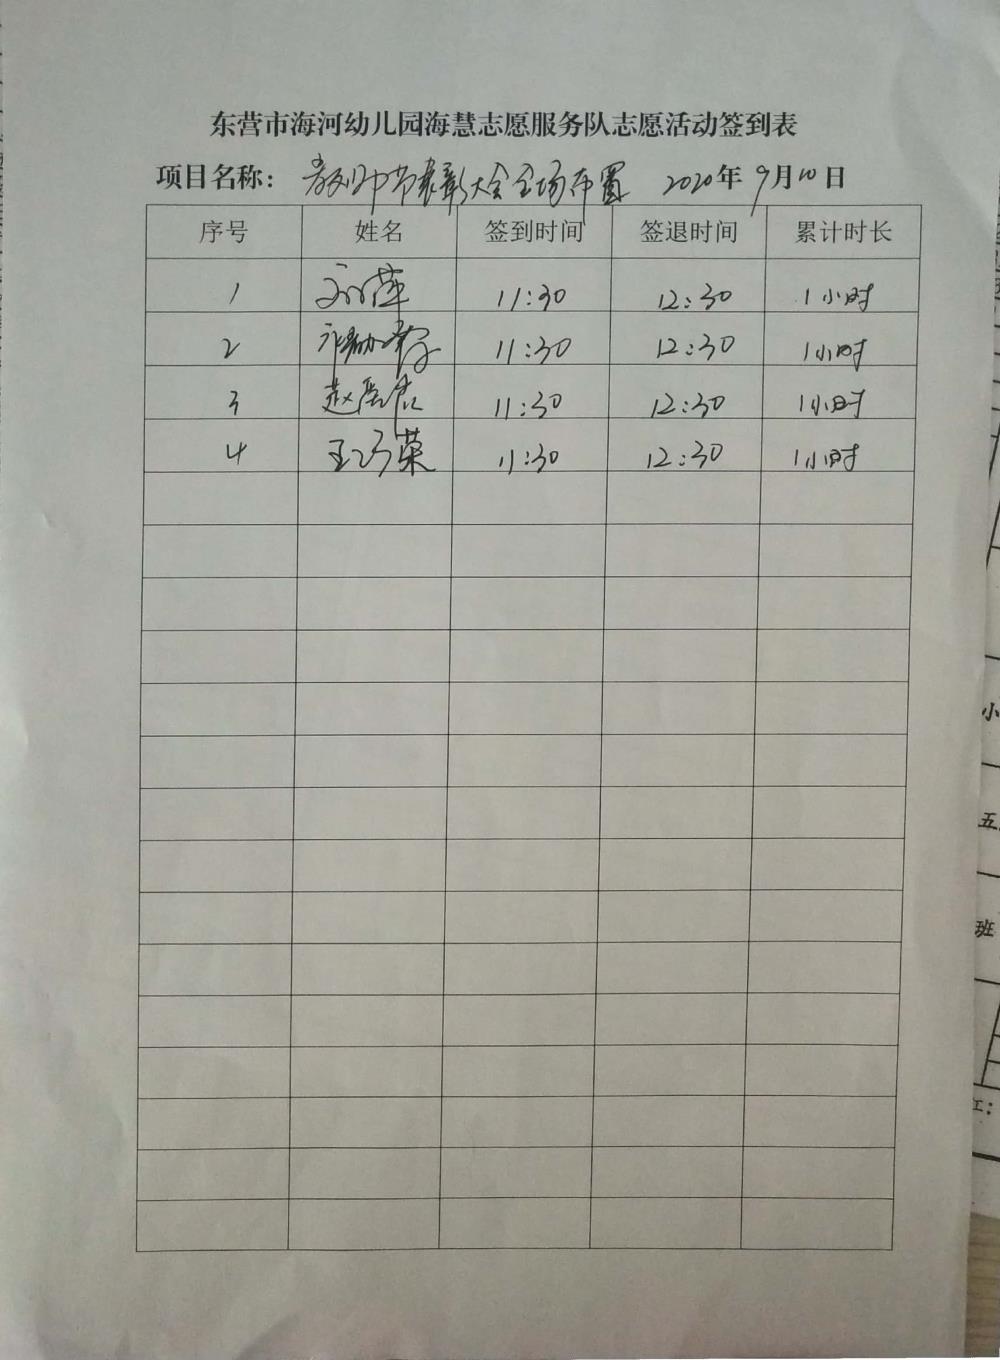 东营市海河幼儿园海慧志愿服务队志愿活动签到表
项目名称： 教师节表彰大会会场布置 2020年9月10日
序号 姓名 签到时间 签退时间 累计时长
1 刘萍 11:30 12:30 1小时
2 11:30 12:30 1小时
3 赵 11:30 12:30 1小时
4 王巧荣 11:30 12:30 1小时
小
五
班